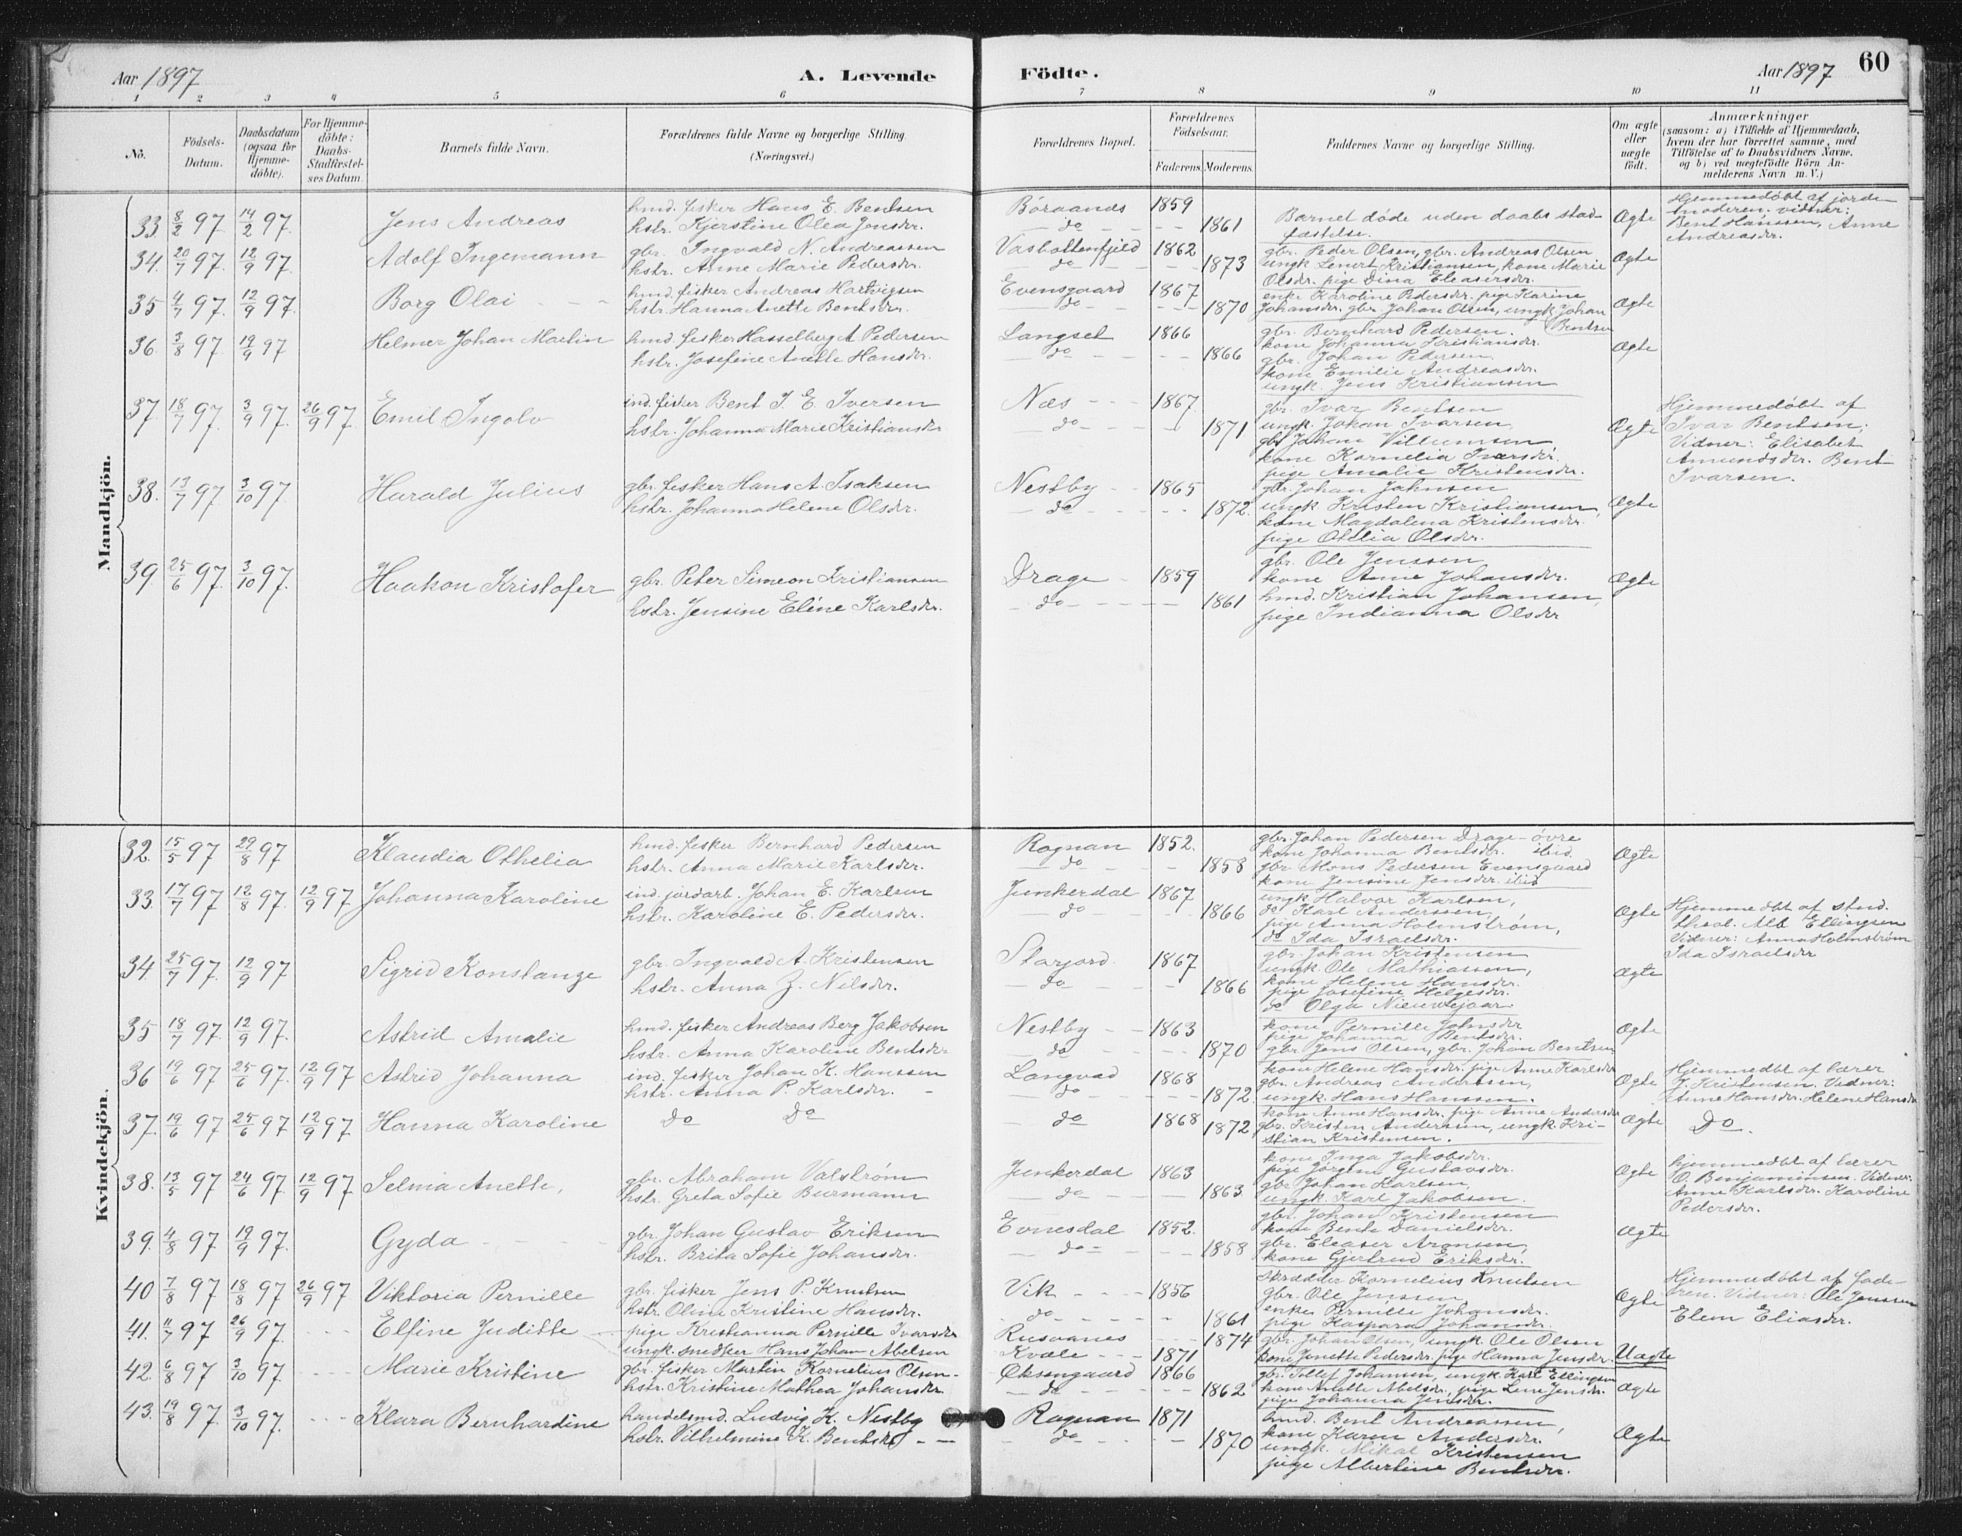 Aar 1897
A. Levende
Födte.
Aar 1897
60
1 2 3 4 5 6 7 8 9 10 11
No.
Födsels-
Datum.
Daabsdatum
(ogsaa for
Hjemme-
döbte).
For Hjemme-
döbte:
Daabs-
Stadfæstel-
ses Datum.
Barnets fulde Navn.
Forældrenes fulde Navne og borgerlige Stilling.
(Næringsvei.)
Forældrenes Bopæl.
Forældrenes
Födselsaar.
Faderens. Moderens.
Faddernes Navne og borgerlige Stilling.
Om ægte
eller
uægte
födt.
Anmærkninger
(saasom: a) i Tilfælde af Hjemmedaab,
hvem der har forrettet samme, med
Tilföielse af to Daabsvidners Navne,
og b) ved uægtefödte Börn An-
melderens Navn m. V.)
Mandkjön.
33. 8/2 97. 14/2 97. Jens Andreas
hmd. fisker Hans E. Bentsen
hstr. Kjerstine Olea Jensdr.
Böraanes 1859
do 1861
Barnet døde uden daabs stad-
fæstelse.
Ægte
Hjemmedøbt af jorde-
moderen. vidner:
Bent Hanssen, Anne
Andreasdr.
34. 20/7 97. 12/9 97. Adolf Ingemann
gbr. Ingvald N. Andreassen
hstr. Anne Marie Pedersdr.
Vasbottenfjeld 1862
do 1873
gbr. Peder Olsen, gbr. Andreas Olsen
ungk. Lenert Kristiansen, kone Marie
Olsdr. pige Dina Eleasersdr.
Ægte
35 4/7 97. 12/9 97. Borg Olai
hmd. fisker Andreas Hartvigsen
hstr. Hanna Anette Bentsdr.
Evensgaard 1867
do 1870
enke Karoline Pedersdr. pige Karine
Johansdr. gbr. Johan Olsen, ungk Johan
Bentsen
Ægte
36. 3/8 97 19/9 97 Helmer Johan Martin
hmd. fisker Hasselberg A. Pedersen
hstr. Josefine Anette Hansdr.
Langset 1866
do 1866
gbr. Bernhard Pedersen.
kone Johanna Kristiansdr.
gbr. Johan Pedersen
kone Emilie Andreasdr.
ungk. Jens Kristiansen
Ægte
37. 18/7 97. 3/9 97. 26/9 97. Emil Ingolv
ind. fisker Bent J. E. Iversen
hstr. Johanna Marie Kristiansdr
Næs 1867
do 1871
gbr. Ivar Bentsen
ungk. Johan Ivarsen,
gbr Johan Villumsen,
kone Kornelia Ivarsdr.
pige Amalie Kristensdr.
Ægte
Hjemmedøbt af
Ivar Bentsen;
Vidner: Elisabet
Amundsdr. Bent
Ivarsen.
38. 13/7 97 3/10 97. Harald Julius
gbr. fisker Hans A. Isaksen
hstr. Johanna Helene Olsdr.
Nestby 1865
do 1872.
gbr. Johan Johnsen
ungk Kristen Kristiansen,
kone Magdalena Kristensdr.
pige Otelia Olsdr.
Ægte
39. 25/6 97. 3/10 97. Haakon Kristofer
gbr. Peter Simeon Kristiansen
hstr. Jensine Eline Karlsdr.
Drage 1859
do 1861
gbr. Ole Jenssen
kone Anne Johansdr.
hmd. Kristian Johansen,
pige Indianna Olsdr
Ægte
Kvindekjön.
32. 15/5 97 29/8 97 Klaudia Othelia
hmd. fisker Bernhard Pedersen
hstr. Anna Marie Karlsdr.
Rognan 1852.
do 1858
gbr. Johan Pedersen Drage-övre
kone Johanna Bentsdr. ibid.
gbr Mons Pedersen Evensgaard
kone Jensine Jensdr. ibid
Ægte
33. 17/7 97 12/8 97. 12/9 97 Johanna Karoline
ind. jordarb. Johan E. Karlsen
hstr. Karoline E. Pedersdr.
Junkerdal 1867
do 1866
ungk Halvor Karlsen,
do Karl Anderssen,
pige Anna Holmstrøm,
do Ida Israelsdr.
Ægte
Hjemmedøbt af stud.
theol. Alb Ellingsen
Vidner: Anna Holmstrøm
Ida Israelsdr
34. 25/7 97. 12/9 97 Sigrid Konstanze
gbr. Ingvald A. Kristensen
hstr. Anna Z. Nilsdr.
Storjord. 1867
do 1866
gbr. Johan Kristensen
ungk Ole Mathiassen,
kone Helene Hansdr.
pige Josefine Helgesdr.
do Olga Nieuwejaar
Ægte
35 18/7 97 12/9 97. Astrid Amalie
hmd. fisker Andreas Berg Jakobsen
hstr. Anna Karoline Bentsdr
Nestby 1863
do 1870
kone Pernille Johnsdr
pige Johanna Bentsdr.
gbr Jens Olsen, gbr. Johan Bentsen
Ægte
36 19/6 97 25/6 97. 12/9 97 Astrid Johanna
ind. fisker Johan K. Hanssen
hstr. Anna P. Karlsdr.
Langvad 1868
do 1872.
kone Helene Hansdr. pige Anne Karlsdr
gbr. Andreas Anderssen,
ungk. Hans Hanssen.
Ægte
Hjemmedøbt af lærer
J. Kristensen. Vidner:
Anne Hansdr. Helene Hansdr
37. 19/6 97 25/6 97 12/9 97 Hanna Karoline
do do
do 1868 1872
kone Anne Hansdr. pige Anne Andersdr
gbr. Kristen Anderssen, ungk. Kri-
stian Kristensen.
Ægte
Do.
38. 13/5 97 24/6 97. 12/9 97 Selma Anette,
gbr. Abraham Valstrøm
hstr. Greta Sofie Burmann
Junkerdal 1863
do 1863
kone Inga Jakobsdr.
pige Jørgine Gustavsdr.
gbr Johan Karlsen,
ungk. Karl Jakobsen.
Ægte
hjemmedøbt af lærer
O. Benjaminsen. Vidner:
Anne Karlsdr. Karoline
Pedersdr.
39. 4/8 97 19/9 97. Gyda
gbr. Johan Gustav Eriksen
hstr. Brita Sofie Johansdr.
Evnesdal 1852.
do 1858
gbr. Johan Kristensen
kone Bente Danielsdr.
gbr. Eleaser Aronsen,
kone Gjertrud Eriksdr.
Ægte
40 7/8 97 18/8 97 26/9 97 Viktoria Pernille
gbr. fisker Jens P. Knutsen
hstr. Oline Kristine Hansdr.
Vik 1856
do 1861
Skrædder Kornelius Knutsen
gbr. Ole Jenssen
enke Pernille Johansdr.
pige Kaspara Johansdr.
Ægte
Hjemmedøbt af fade-
ren. Vidner: Ole Jenssen
Elem Eliasdr.
41. 11/7 97 26/9 97. Elfine Juditte
pige Kristianna Pernille Ivarsdr
ungk. snedker Hans Johan Abelsen
Rusvanes 1874
Kvæle 1871
gbr. Johan Olsen, ungk. Ole Olsen
kone Jonette Pedersdr, pige Hanna Jensdr.
Uægte
42. 6/8 97 3/10 97. Marie Kristine
gbr. fisker Martin Kornelius Olsen
hstr. Kristine Mathea Johansdr
Øksengaard 1866
do 1862
gbr. Tollef Johansen, ungk. Karl Ellingsen
kone Anette Abelsdr, pige Lene Jensdr.
pige Johanna Jensdr.
Ægte
43. 19/8 97. 3/10 97. Klara Bernhardine
handelsmd. Ludvig K. Nestby
hstr. Vilhelmine K. Bentsdr
Rognan 1871
do 1870
hmd. Bent Andreassen,
kone Karen Andersdr,
ungk. Mikal Kristensen
pige Albertine Bentsdr.
Ægte